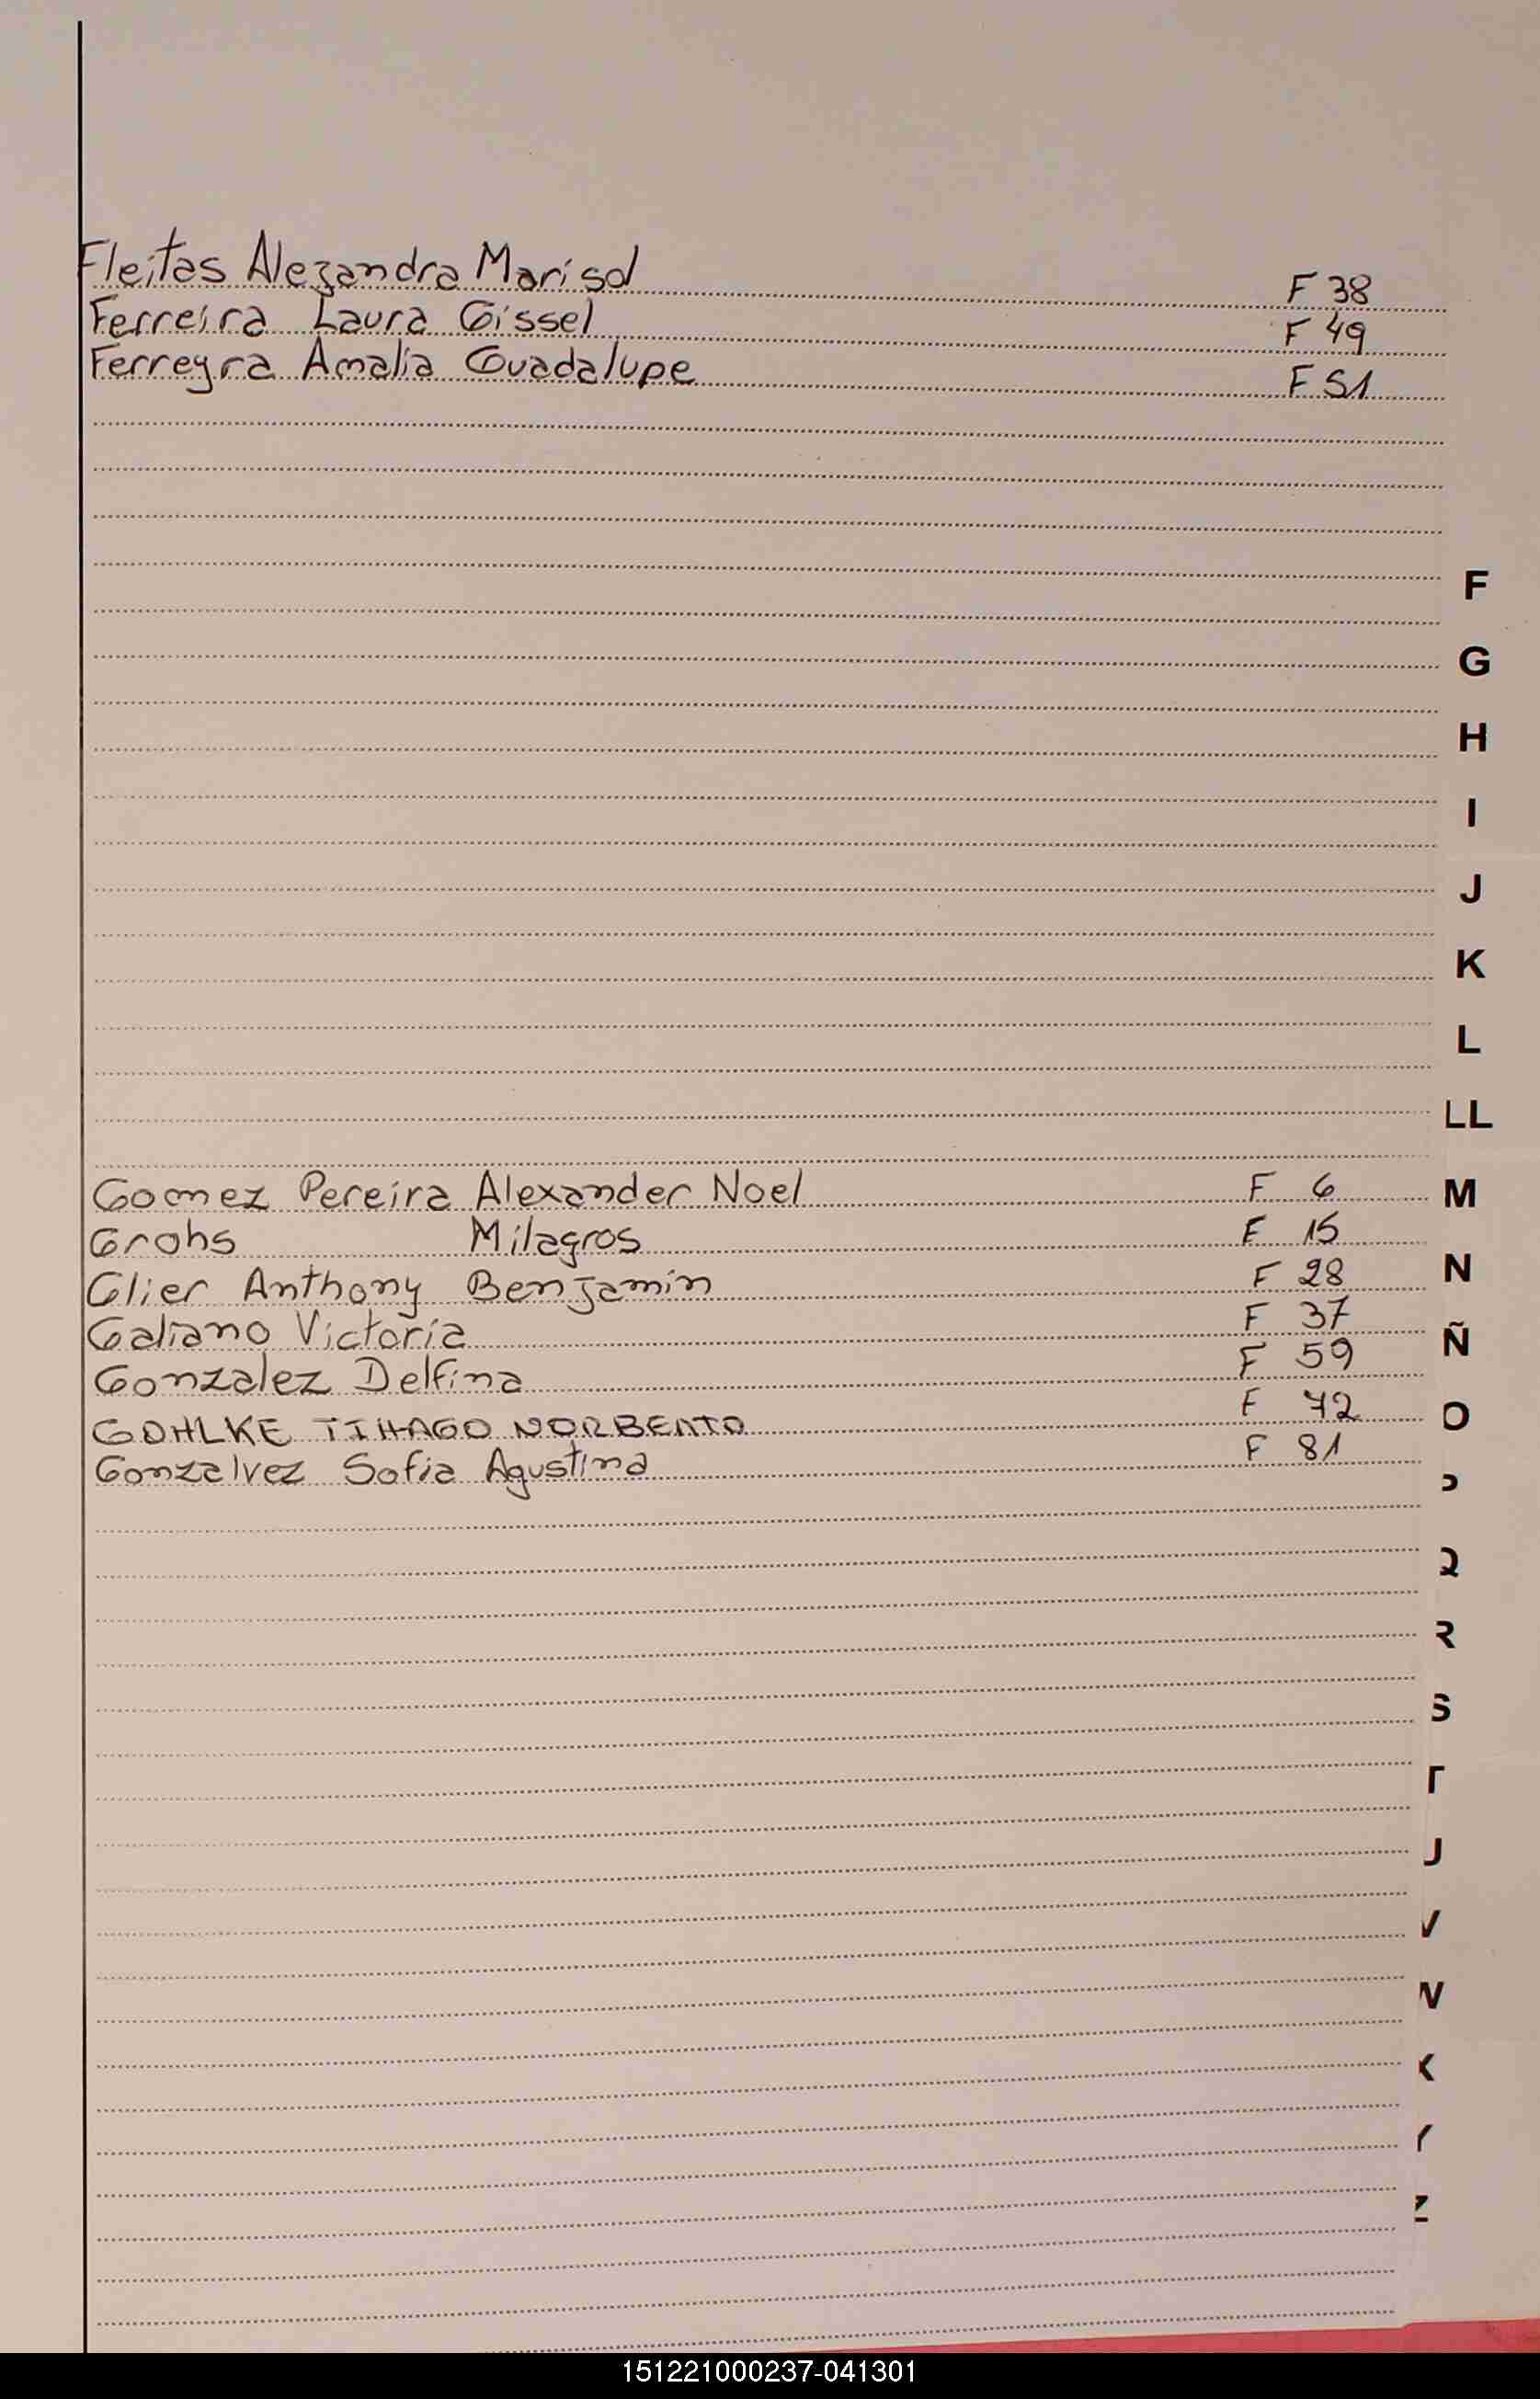 Fleitas Alezandra Marisol F 38
Ferreira Laura Gissel F 49
Ferreyra Amalia Guadalupe F 51
F
G
H
I
J
K
L
LL
Gomez Pereira Alexander Noel F 6
M
Grohs Milagros F 15
Glier Anthony Benjamin F 28
N
Galiano Victoria F 37
Ñ
Gonzalez Delfina F 59
GOHLKE TIHAGO NORBERTO F 72
O
Gonzalvez Sofia Agustina F 81
P
Q
R
S
T
U
V
W
X
Y
Z
151221000237-041301